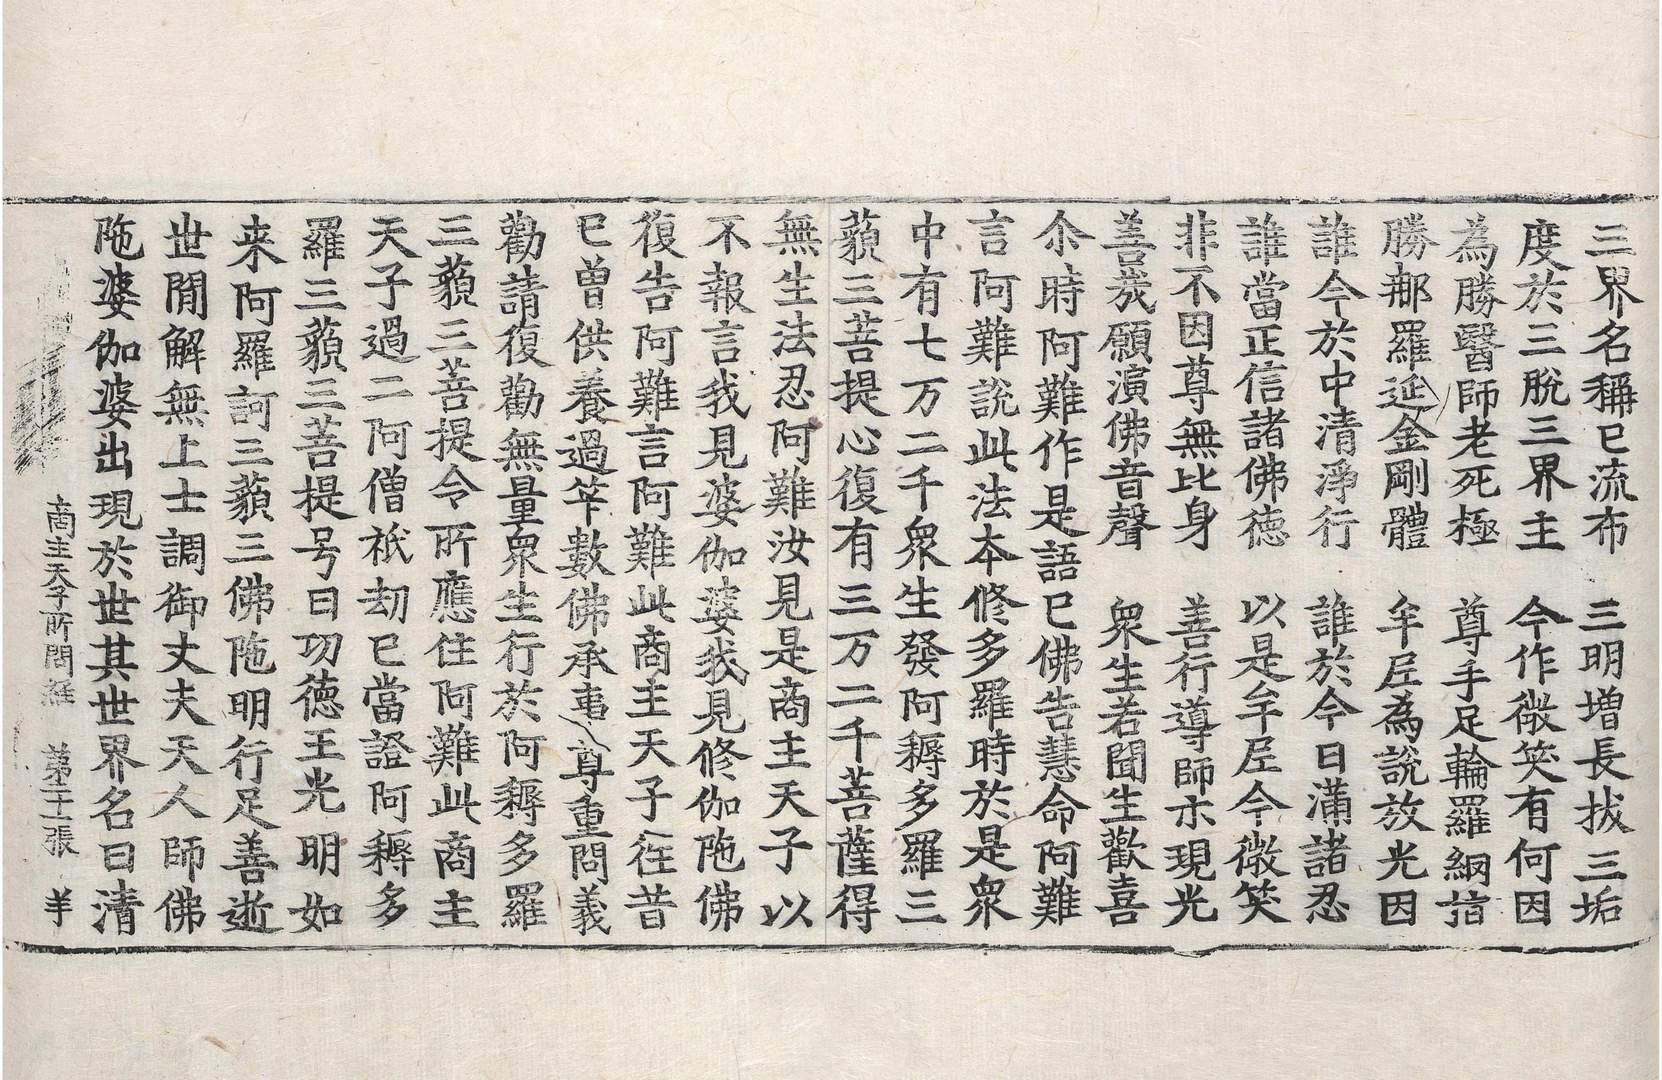 三界名稱已流布　三明增長拔三垢
度於三脫三界主　今作微笑有何因
為勝醫師老死極　尊手足輪羅網指
勝郍羅延金剛體　牟𡰱為說放光因
誰今於中清淨行　誰於今日蒲諸忍
誰當正信諸佛德　以是牟𡰱今微笑
非不因尊無比身　善行導師示現光
善哉願演佛音聲　眾生若聞生歡喜
尒時阿難作是語已佛告慧命阿難
言阿難說此法本修多羅時於是眾
中有七万二千眾生發阿耨多羅三
藐三菩提心復有三万二千菩薩得
無生法忍阿難汝見是商主天子以
不報言我見婆伽婆我見修伽陁佛
復告阿難言阿難此商主天子徃昔
已曾供養過筭數佛承事尊重問義
勸請復勸無量眾生行於阿耨多羅
三藐三菩提令所應住阿難此商主
天子過二阿僧祇劫已當證阿耨多
羅三藐三菩提号曰功德王光明如
来阿羅訶三藐三佛陁明行足善逝
世閒解無上士調御丈夫天人師佛
陁婆伽婆出現於世其世界名曰清
商主天子所問經　第二十二張　羊